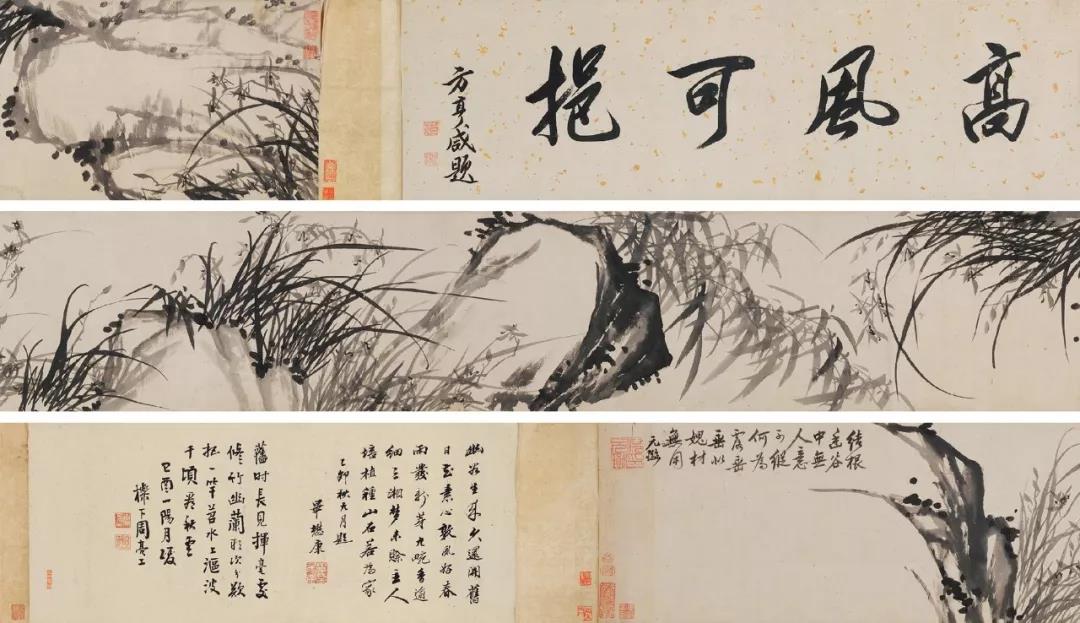 高風可挹
方亨咸題
結根
谷
中無
人意
何為
垂
垂似
媿材
無用
元璐
幽谷生來久還開舊
日至素心敦風好春
雨叢新芽九畹香過
細三湘夢未賒主人
培植種山石若為家
乙卯秋九月題
畢懋康
舊時長見揮毫處
修竹幽蘭取次分欲
把一竿苕水上漚波
千頃看秋雲
己酉一陽月後
櫟下周亮工